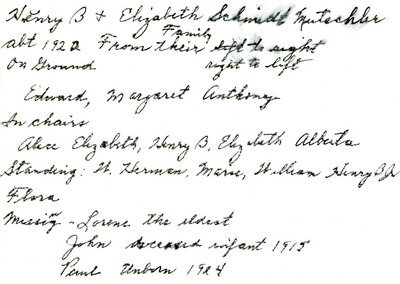 Henry B & Elizabeth Schmidt Mutschler
abt 1922 From Their Family left to right
On Ground right to left
Edward, Margaret Anthony
In chairs
Alice Elizabeth, Henry B, Elizabeth Alberta
Standing: W. Herman, Marie, William Henry B Jr
Flora
Missing - Lorene the eldest
John deceased infant 1915
Paul Unborn 1924